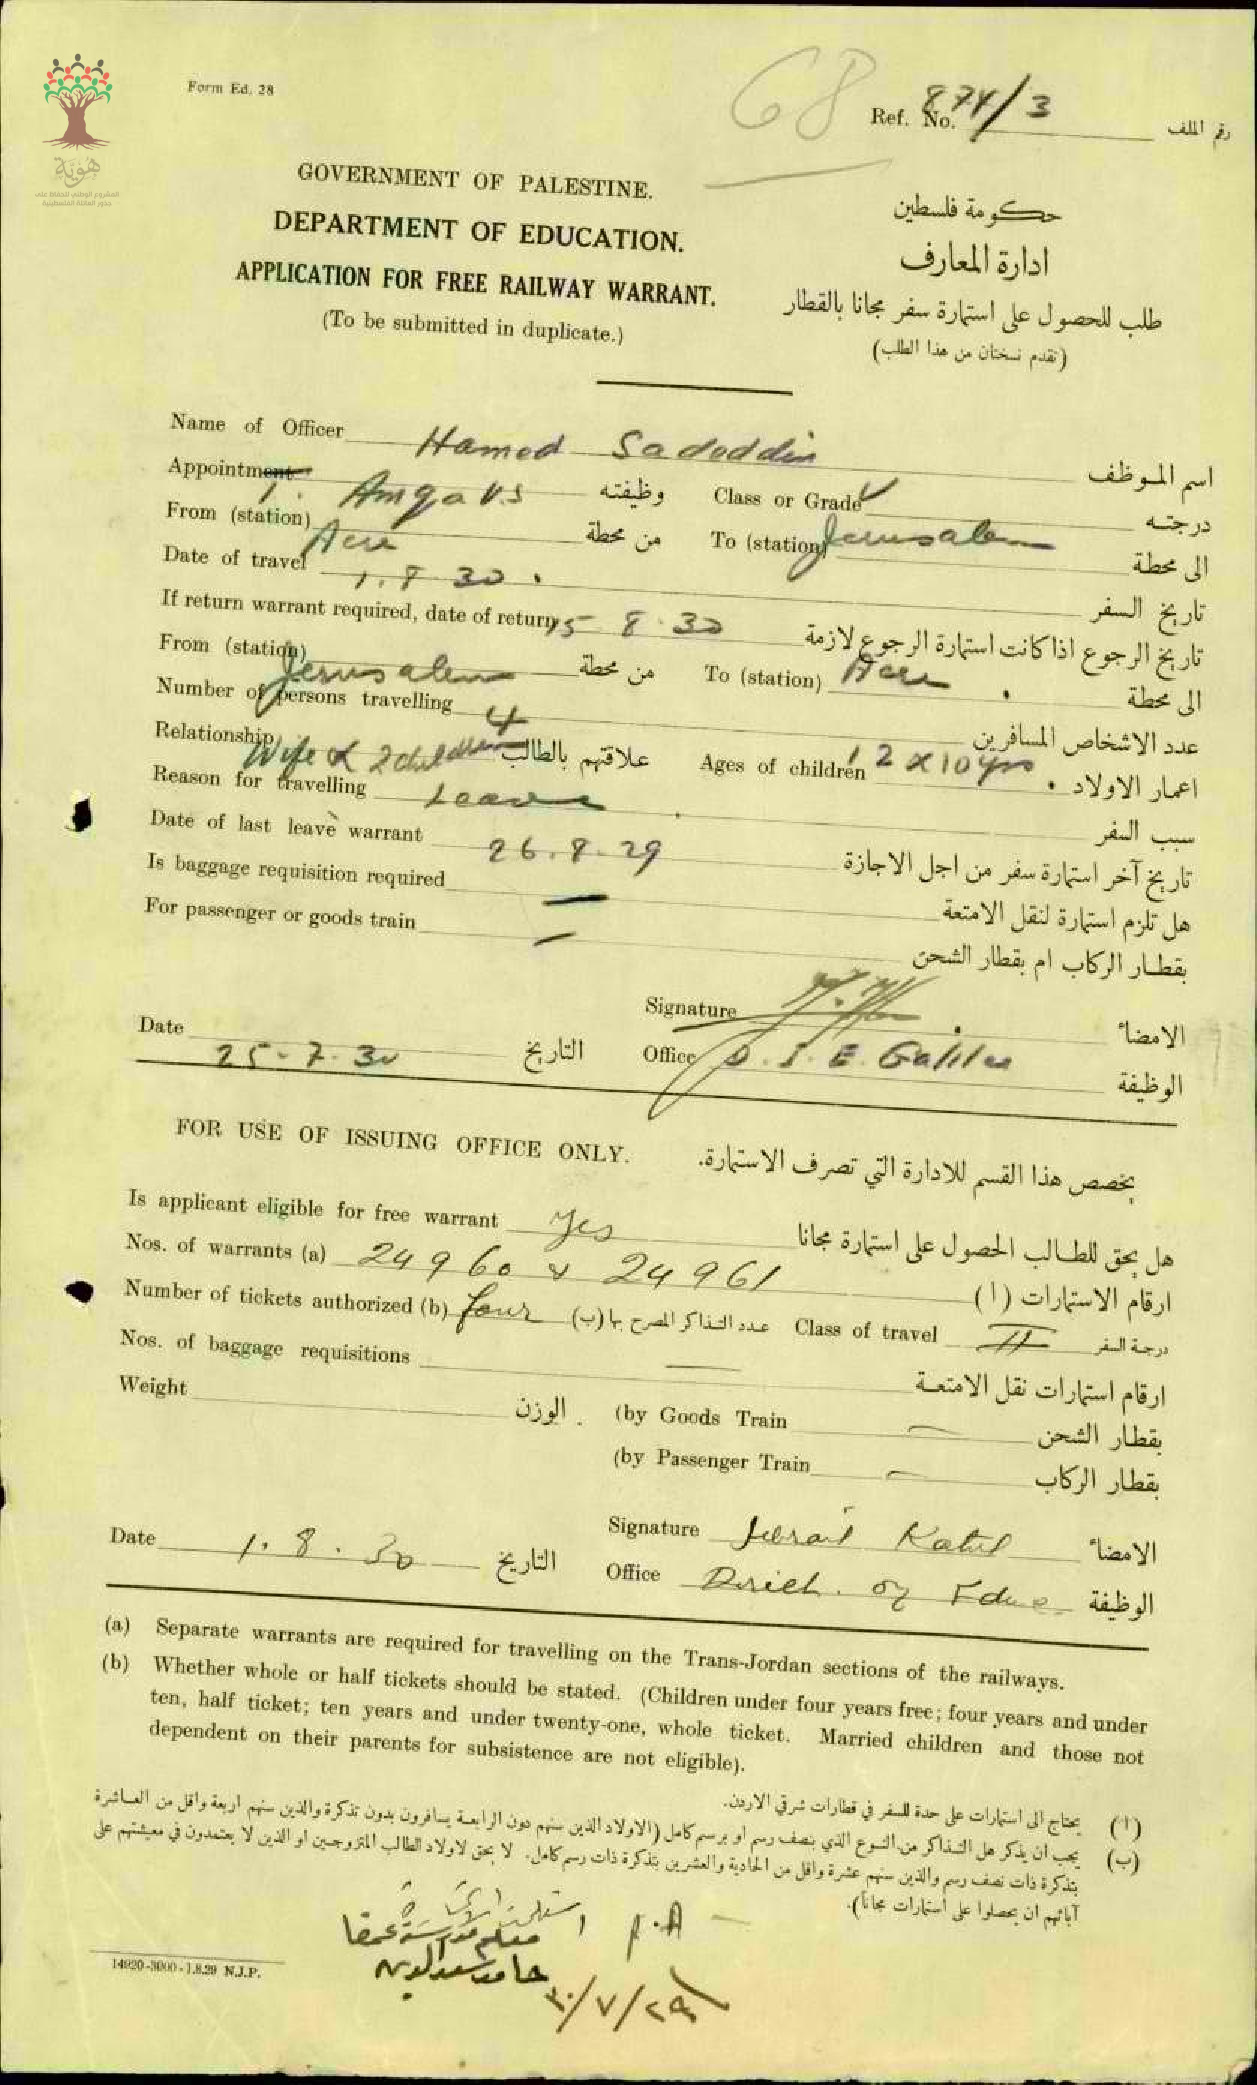 هوية
المشروع الوطني للحفاظ على
جذور العائلة الفلسطينية
Form Ed. 28
68
Ref. No. 874/3 رقم الملف
GOVERNMENT OF PALESTINE.
DEPARTMENT OF EDUCATION.
APPLICATION FOR FREE RAILWAY WARRANT.
(To be submitted in duplicate.)
حكومة فلسطين
ادارة المعارف
طلب للحصول على استمارة سفر مجانا بالقطار
(تقدم نسختان من هذا الطلب)
Name of Officer Hamed Sadeddin اسم الموظف
Appointment Amqa V.S وظيفته Class or Grade درجته
From (station) Acre من محطة To (station) Jerusalem الى محطة
Date of travel 1.8 30. تاريخ السفر
If return warrant required, date of return 15 8.30 تاريخ الرجوع اذا كانت استمارة الرجوع لازمة
From (station) Jerusalem من محطة To (station) Acre الى محطة
Number of persons travelling 4 عدد الاشخاص المسافرين
Relationship Wife & 2 children علاقتهم بالطالب Ages of children 12 x 10 yrs اعمار الاولاد
Reason for travelling Leave سبب السفر
Date of last leave warrant 26.8.29 تاريخ آخر استمارة سفر من اجل الاجازة
Is baggage requisition required — هل تلزم استمارة لنقل الامتعة
For passenger or goods train — بقطار الركاب ام بقطار الشحن
Signature الامضاء
Date 25-7.30 التاريخ Office D. I. E. Galilee الوظيفة
FOR USE OF ISSUING OFFICE ONLY. يخصص هذا القسم للادارة التي تصرف الاستمارة.
Is applicant eligible for free warrant Yes هل يحق للطالب الحصول على استمارة مجانا
Nos. of warrants (a) 24960 & 24961 ارقام الاستمارات (ا)
Number of tickets authorized (b) four عدد التذاكر المصرح بها (ب) Class of travel II درجة السفر
Nos. of baggage requisitions — ارقام استمارات نقل الامتعة
Weight الوزن. (by Goods Train — بقطار الشحن
(by Passenger Train — بقطار الركاب
Signature Jebrail Katul الامضاء
Date 1.8.30 التاريخ Office Direct. of Educ. الوظيفة
(a) Separate warrants are required for travelling on the Trans-Jordan sections of the railways.
(b) Whether whole or half tickets should be stated. (Children under four years free; four years and under
ten, half ticket; ten years and under twenty-one, whole ticket. Married children and those not
dependent on their parents for subsistence are not eligible).
(ا) يحتاج الى استمارات على حدة للسفر في قطارات شرقي الاردن.
(ب) يجب ان يذكر هل التذاكر من النوع الذي بنصف رسم او برسم كامل (الاولاد الذين سنهم دون الرابعة يسافرون بدون تذكرة والذين سنهم اربعة واقل من العاشرة
بتذكرة ذات نصف رسم والذين سنهم عشرة واقل من الحادية والعشرين بتذكرة ذات رسم كامل. لا يحق لاولاد الطالب المتزوجين او الذين لا يعتمدون في معيشتهم على
آبائهم ان يحصلوا على استمارات مجانا).
P.A
معلم مدرسة عمقا
حامد سعد الدين
٣٠/٧/٢٩
14920-3000-1.8.29 N.J.P.